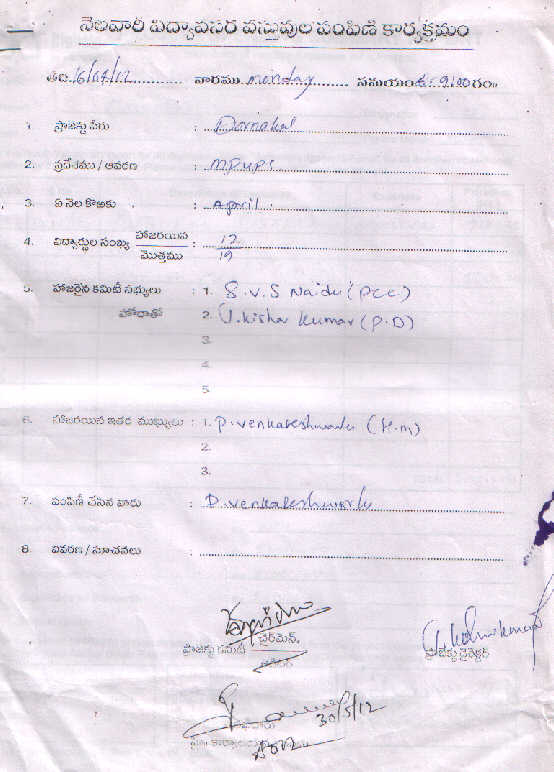 నెలవారి విద్యావసర వస్తువుల పంపిణి కార్యక్రమం
తేది 16/04/12 వారము monday సమయం 9.00 గం
1. ప్రాజెక్టు పేరు : Dornakal
2. ప్రదేశము / ఆవరణ : MPUPS
3. ఏ నెల కొఱకు : April
4. విద్యార్థుల సంఖ్య హాజరయిన / మొత్తము : 17 / 19
5. హాజరైన కమిటీ సభ్యులు : 1. S.V.S Naidu (PCC)
హోదాతో 2. J.Kishor Kumar (P.D)
3.
4.
5.
6. హాజరయిన ఇతర ముఖ్యులు : 1. P.Venkateshwarlu (H.M)
2.
3.
7. పంపిణీ చేసిన వారు : D.Venkateshwarlu
8. వివరణ / సూచనలు :
చైర్మెన్,
ప్రాజెక్టు కమిటీ
ప్రాజెక్టు డైరెక్టర్
30/5/12